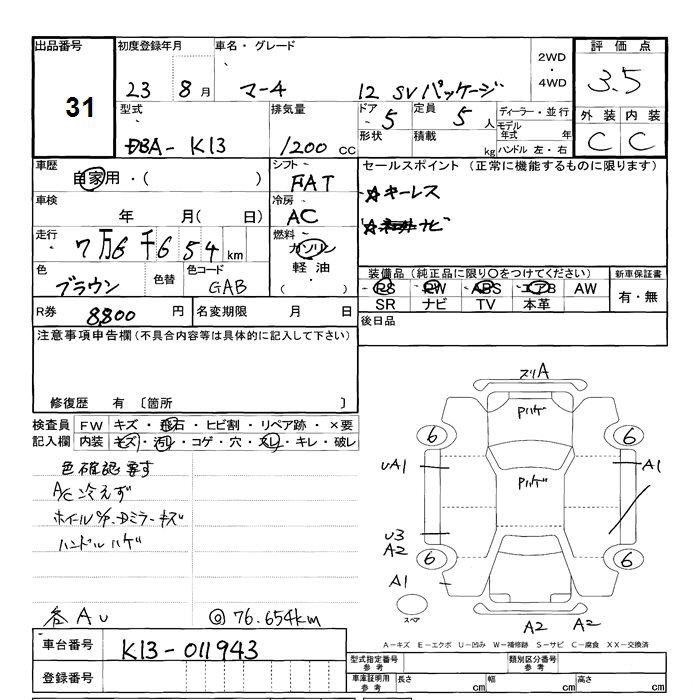 出品番号 初度登録年月 車名・グレード 2WD・4WD 評価点
31
23 8月 マーチ 12 SVパッケージ 3.5
型式 排気量 ドア 5 定員 5人 ディーラー・並行 外装 内装
DBA-K13 1200cc 形状 積載 kg モデル年式 年 C C
ハンドル 左・右
車歴 シフト セールスポイント (正常に機能するものに限ります)
自家用・( ) FAT ☆キーレス
車検 冷房
年 月( 日) AC ナビ
走行 燃料
7万6千654km ガソリン・軽油
色 色替 色コード 装備品(純正品に限り○をつけてください) 新車保証書
ブラウン GAB PS PW ABS エアB AW 有・無
SR ナビ TV 本革
R券 8,800円 名変期限 月 日 後日品
注意事項申告欄(不具合内容等は具体的に記入して下さい)
修復歴 有 〔箇所 〕
検査員 FW キズ・飛石・ヒビ割・リペア跡・×要
記入欄 内装 キズ・汚レ・コゲ・穴・スレ・キレ・破レ
色確認要す
A/C冷えず
ホイールC/P.Dミラーキズ
ハンドルハゲ
各AU @76.654km
ズリA
Pハゲ
6 6
UA1 A1
Pハゲ
U3
A2
6 6
A1
スペア
A2 A2
A-キズ E-エクボ U-凹み W-補修跡 S-サビ C-腐食 XX-交換済
車台番号 K13-011943
登録番号
型式指定番号参考 類別区分番号参考
車庫証明用参考 長さ cm 幅 cm 高さ cm